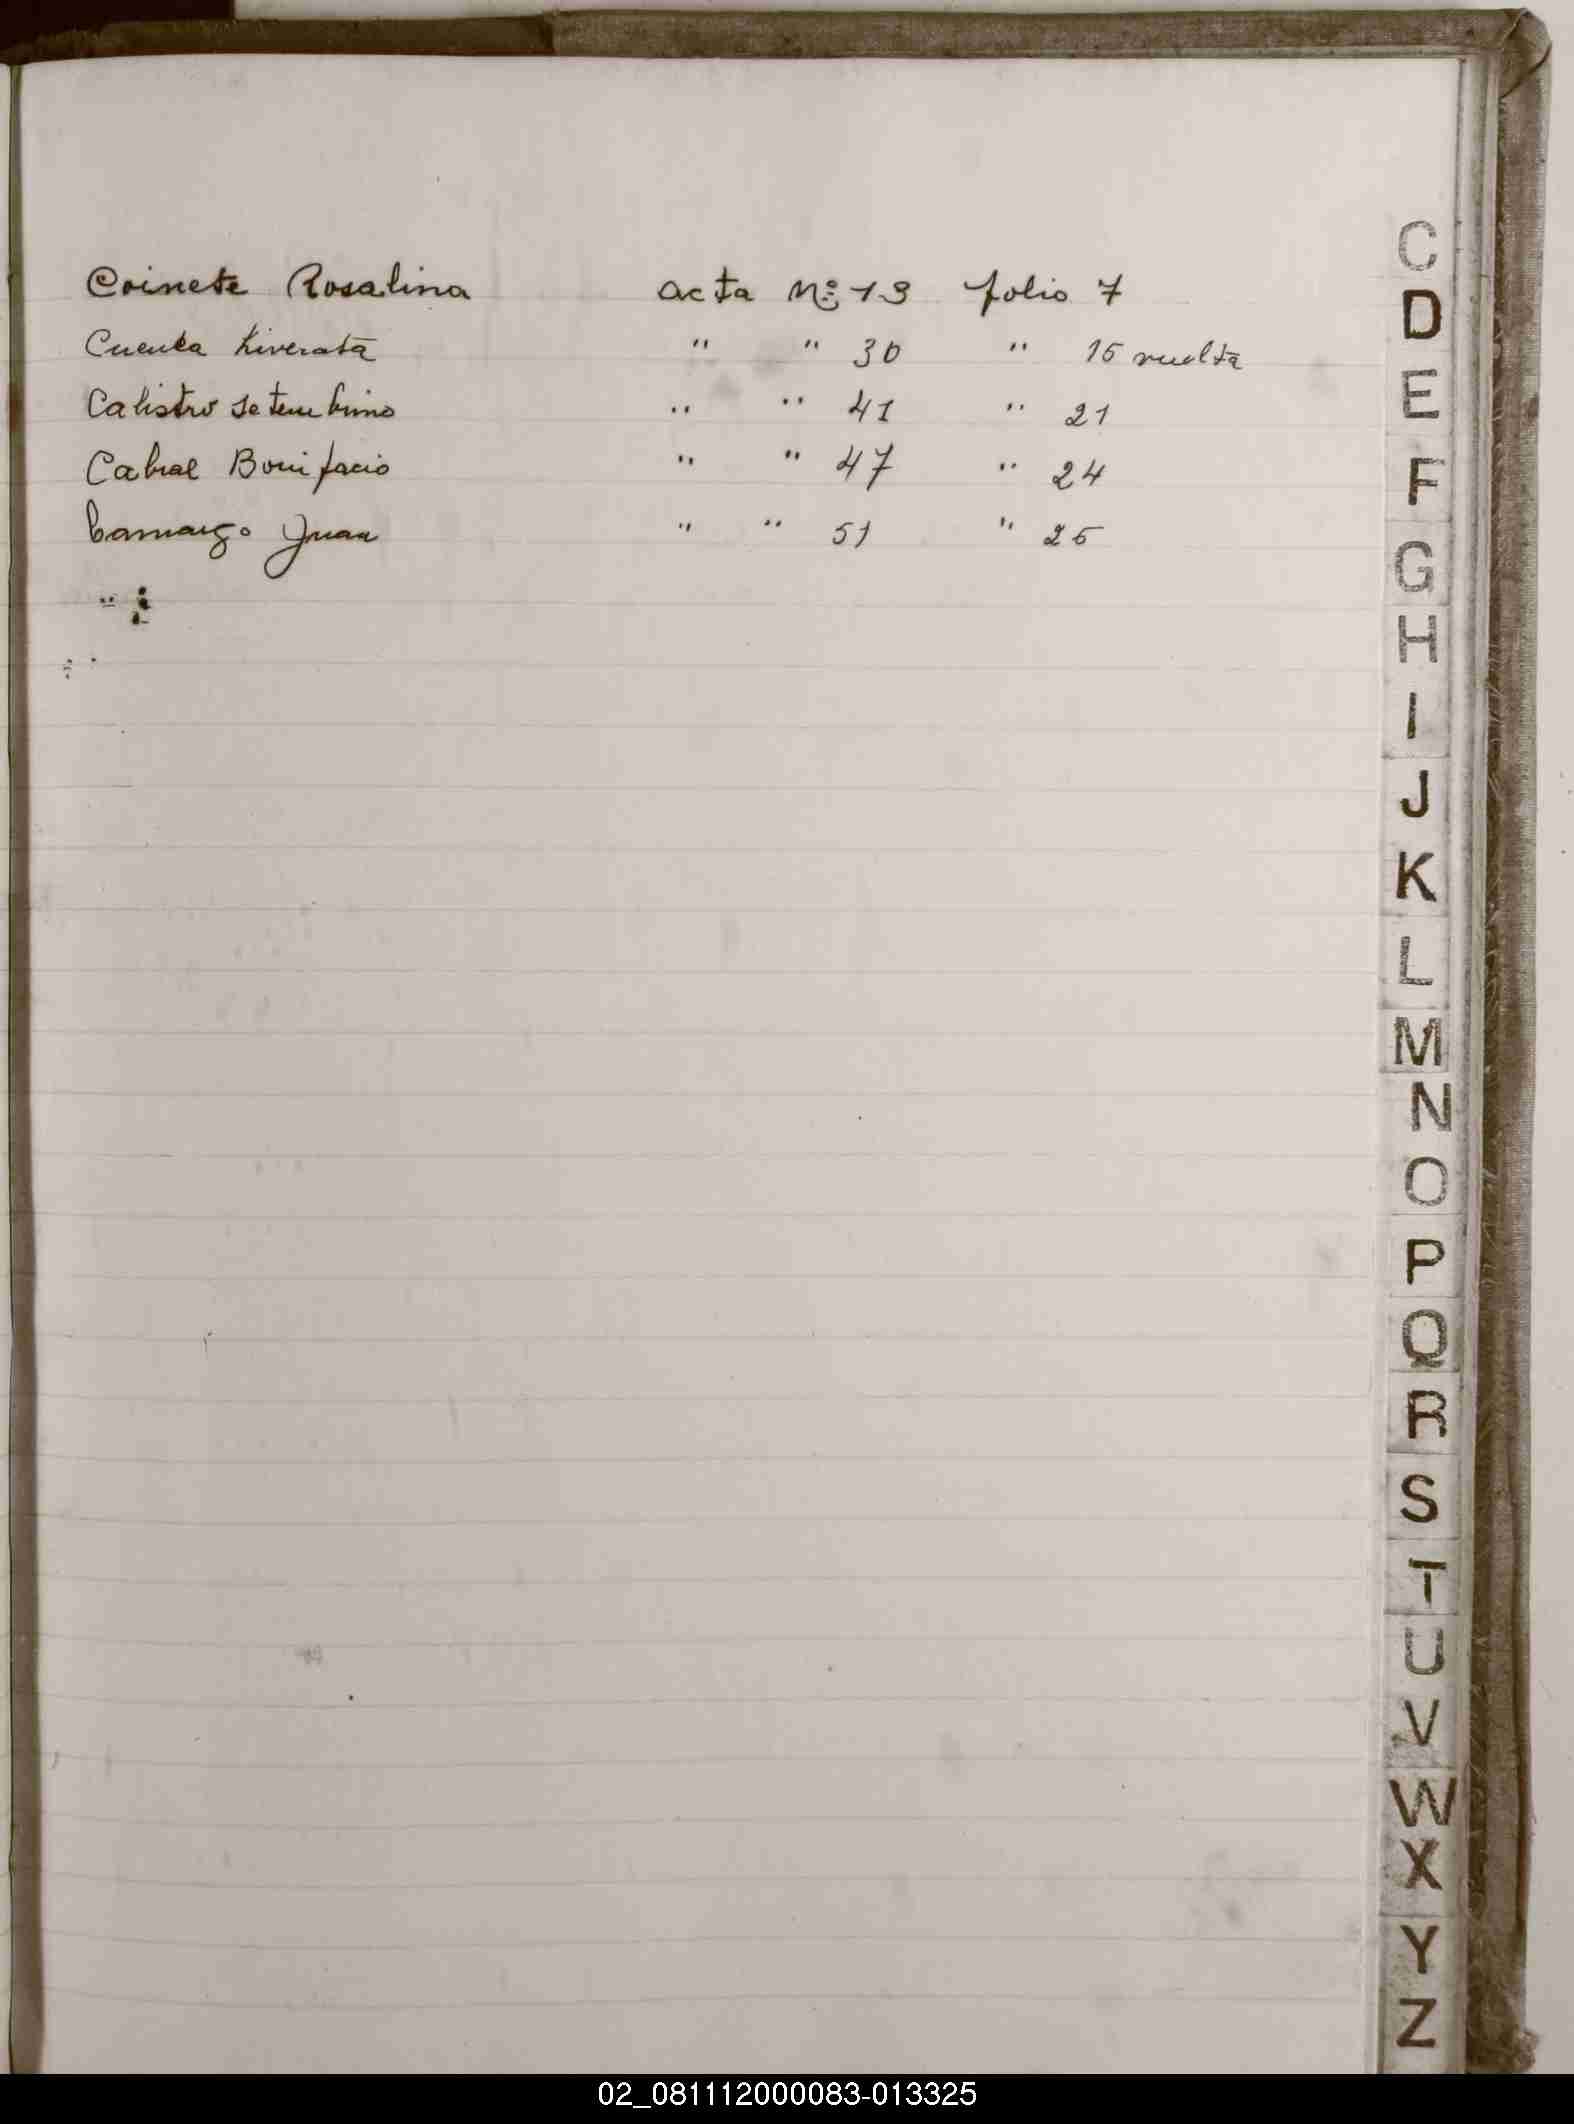 Coinete Rosalina acta Nº 13 folio 7
Cuenca Liverata " " 30 " 15 vuelta
Calistro Setembrino " " 41 " 21
Cabral Bonifacio " " 47 " 24
Camargo Juan " " 51 " 25
C
D
E
F
G
H
I
J
K
L
M
N
O
P
Q
R
S
T
U
V
W
X
Y
Z
02_081112000083-013325